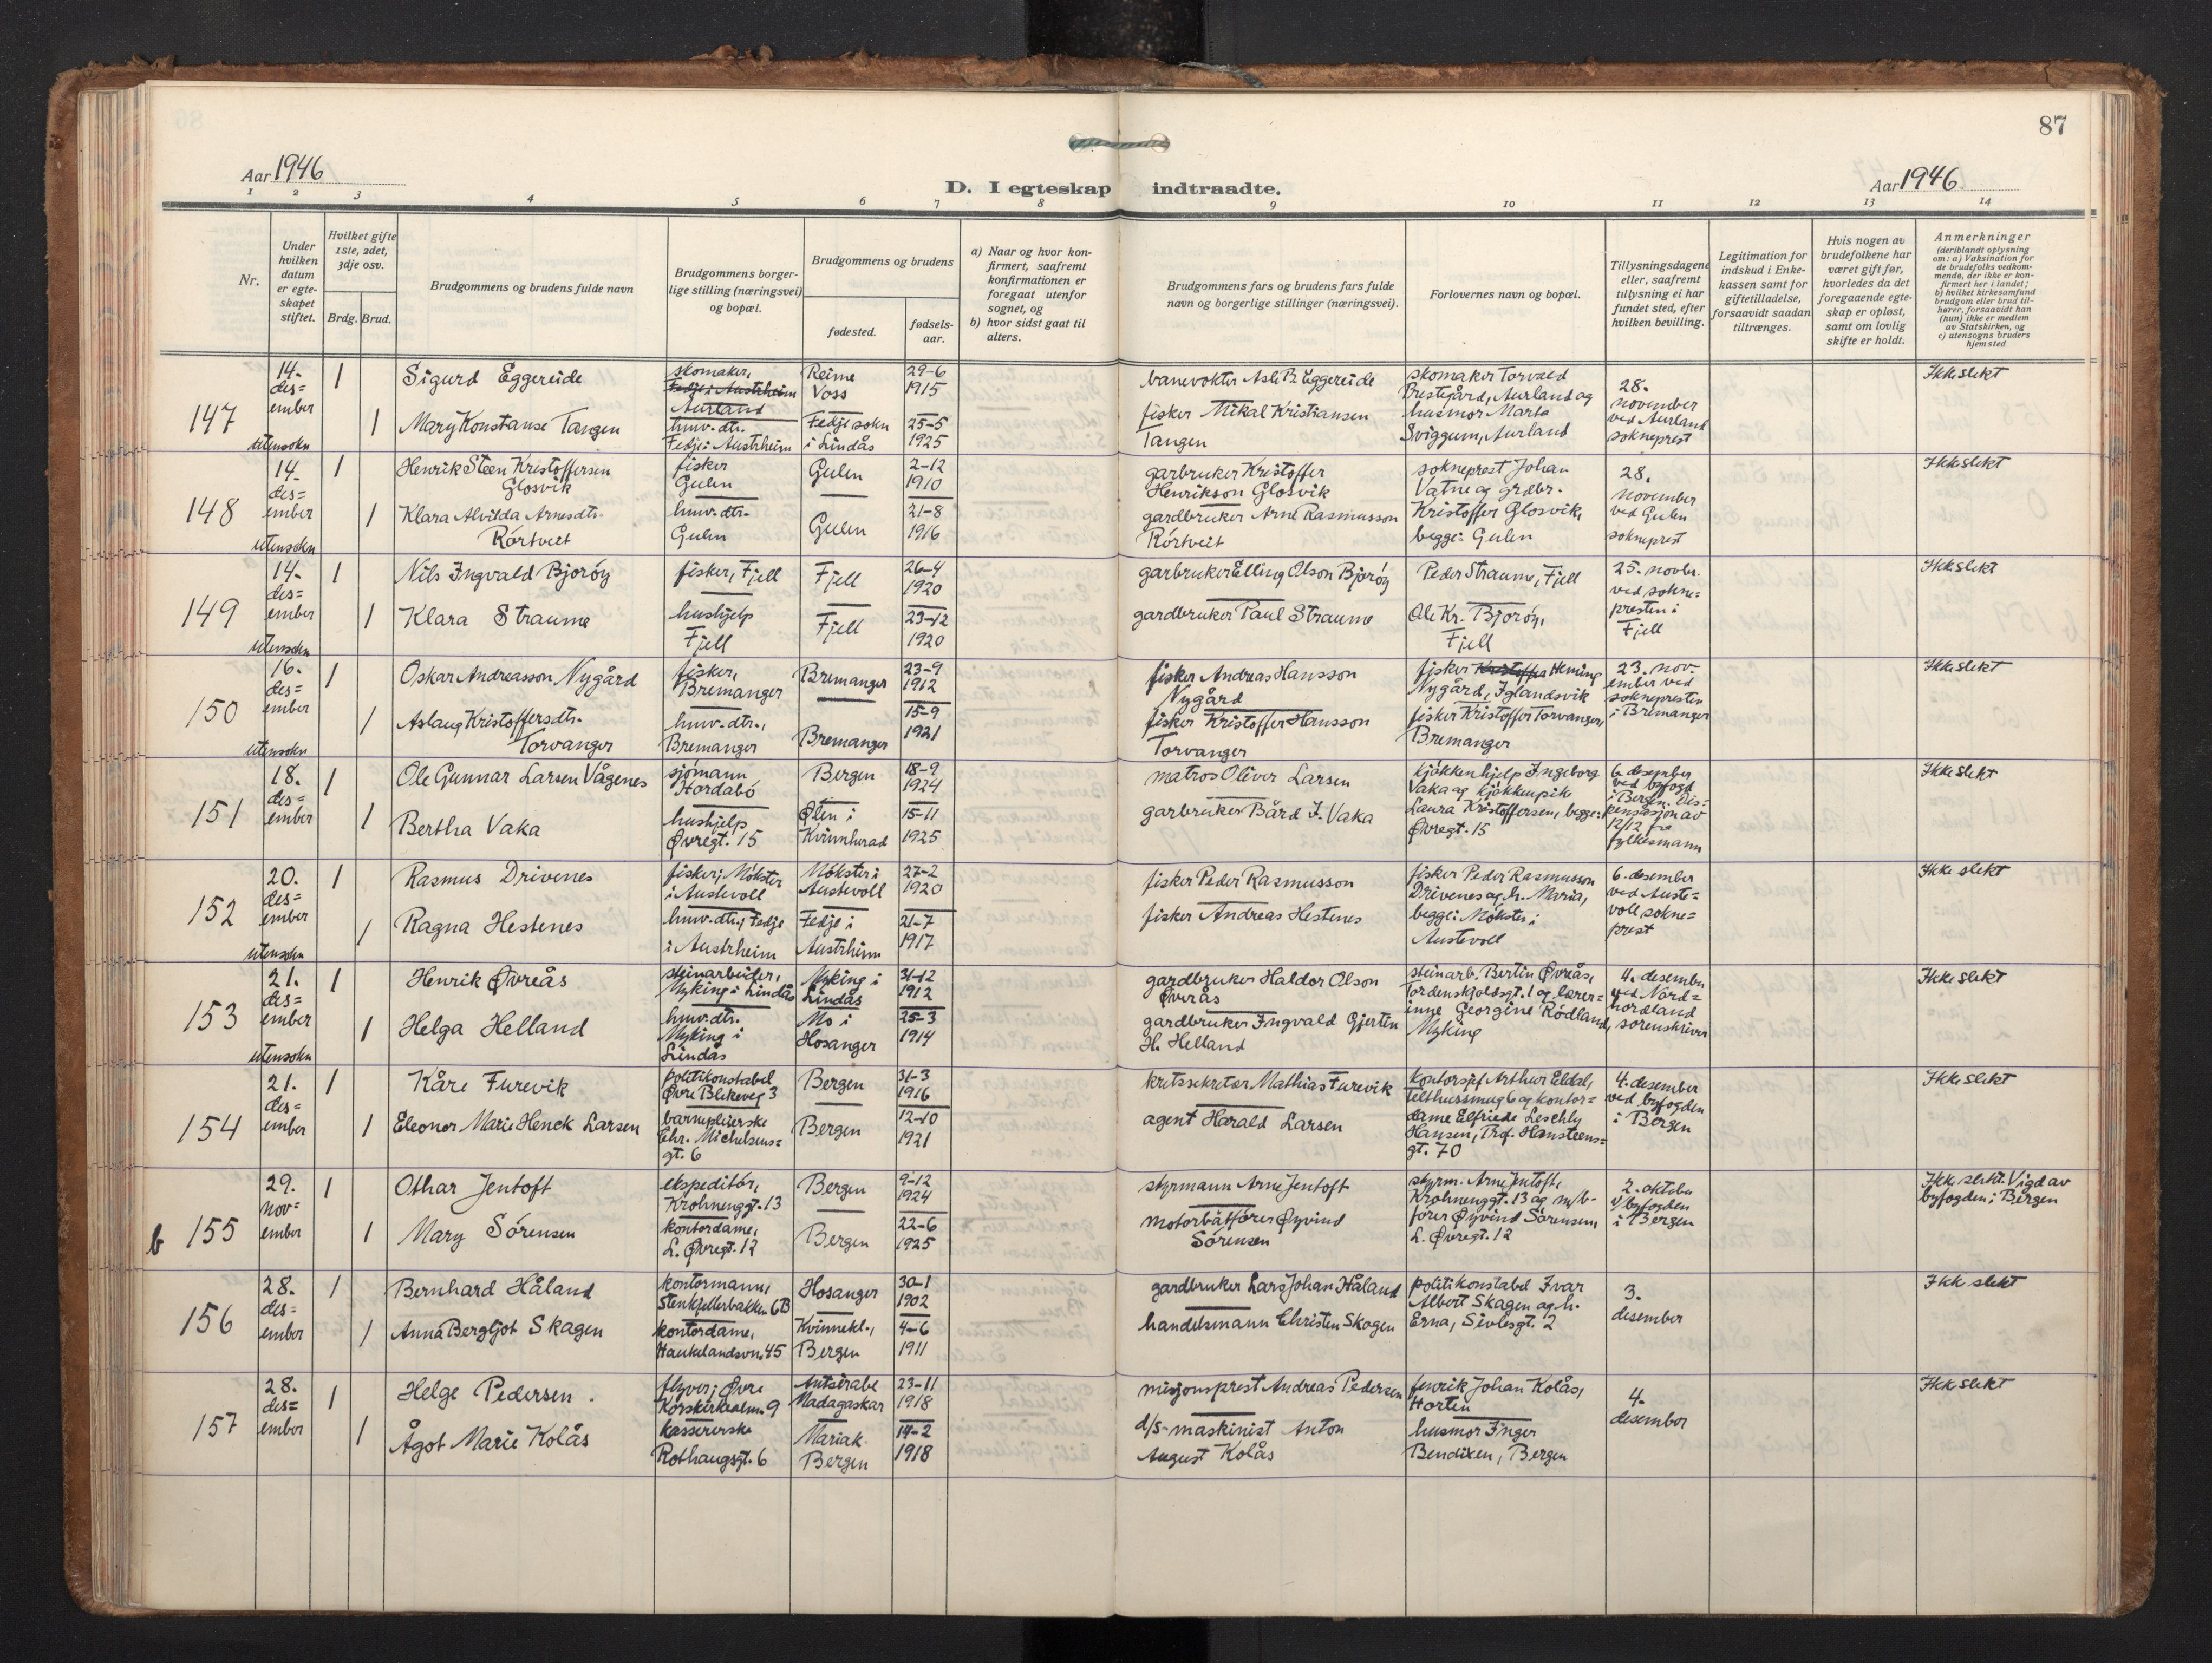 87
Aar 1946
D. I egteskap indtraadte.
Aar 1946
1 2 3 4 5 6 7 8 9 10 11 12 13 14
Nr.
Under hvilken datum er egteskapet stiftet.
Hvilket gifte 1ste, 2det, 3dje osv.
Brdg. Brud.
Brudgommens og brudens fulde navn
Brudgommens borgerlige stilling (næringsvei) og bopæl.
Brudgommens og brudens
fødested.
fødselsaar.
a) Naar og hvor konfirmert, saafremt konfirmationen er foregaat utenfor sognet, og
b) hvor sidst gaat til alters.
Brudgommens fars og brudens fars fulde navn og borgerlige stillinger (næringsvei).
Forlovernes navn og bopæl.
Tillysningsdagene eller, saafremt tillysning ei har fundet sted, efter hvilken bevilling.
Legitimation for indskud i Enkekassen samt for giftetilladelse, forsaavidt saadan tiltrænges.
Hvis nogen av brudefolkene har været gift før, hvorledes da det foregaaende egteskap er opløst, samt om lovlig skifte er holdt.
Anmerkninger
(deriblandt oplysning om: a) Vaksination for de brudefolks vedkommende, der ikke er konfirmert her i landet; b) hvilket kirkesamfund brudgom eller brud tilhører, forsaavidt han (hun) ikke er medlem av Statskirken, og c) utensogns bruders hjemsted
147 utensokn
14. desember
1 Sigurd Eggereide
skomaker, Fedje i Austrheim Aurland
Reime Voss
29-6 1915
1 Mary Konstanse Tangen
huw. dtr. Fedje i Austrheim
Fedje sokn i Lindås
25-5 1925
banevokter Asle B. Eggereide
fisker Mikal Kristiansen Tangen
skomaker Torvald Prestegård, Aurland og husmor Marta Sviggum, Aurland
28. november ved Aurland sokneprest
Ikke slekt
148 utensokn
14. desember
1 Henrik Steen Kristoffersen Glosvik
fisker Gulen
Gulen
2-12 1910
1 Klara Alvilda Arnesdtr. Rórtveit
huw. dtr. Gulen
Gulen
21-8 1916
garbruker Kristoffer Henrikson Glosvik
gardbruker Arne Rasmusson Rórtveit
sokneprest Johan Vatne og grdbr. Kristoffer Glosvik, begge i Gulen
28. november ved Gulen sokneprest
Ikke slekt
149 utensokn
14. desember
1 Nils Ingvald Bjoróy
fisker, Fjell
Fjell
26-4 1920
1 Klara Straume
hushjelp Fjell
Fjell
23-12 1920
garbruker Elling Olson Bjoróy
gardbruker Paul Straume
Peder Straume, Fjell
Ole Kr. Bjoróy, Fjell
25. novbr. ved sokne= presten i Fjell
Ikke slekt
150 utensokn
16. desember
1 Oskar Andreasson Nygård
fisker, Bremanger
Bremanger
23-9 1912
1 Aslaug Kristoffersdtr. Torvanger
huw. dtr., Bremanger
Bremanger
15-9 1921
fisker Andreas Hansson Nygård
fisker Kristoffer Hansson Torvanger
fisker Kristoffer Heming Nygård, Iglandsvik
fisker Kristoffer Torvanger, Bremanger
23. november ved sokneprestenen i Bremanger
Ikke slekt
151
18. desember
1 Ole Gunnar Larsen Vågenes
sjómann Hordabó
Bergen
18-9 1924
1 Bertha Vaka
hushjelp Øvregt. 15
Ølen i Kvinnherad
15-11 1925
matros Oliver Larsen
garbruker Bård J. Vaka
kjókkenhjelp Ingeborg Vaka og kjókkenpike Laura Kristoffersen, begge: Øvregt. 15
6. desember ved byfogd i Bergen. Dis= pensasjon av 12/12 fra fylkesmann
Ikke slekt
152 utensokn
20. desember
1 Rasmus Drivenes
fisker, Mókster i Austevoll
Mókster i Austevoll
27-2 1920
1 Ragna Hestenes
huw. dtr., Fedje i Austrheim
Fedje i Austrheim
21-7 1917
fisker Peder Rasmusson
fisker Andreas Hestenes
fisker Peder Rasmusson Drivenes og h. Maria, begge: Mókster i Austevoll
6. desember ved Auste= voll sokne= prest
Ikke slekt
153 utensokn
21. desember
1 Henrik Øvreås
steinarbeider, Myking i Lindås
Myking i Lindås
31-12 1912
1 Helga Helland
huw. dtr. Myking i Lindås
Mo i Hosanger
25-3 1914
gardbruker Haldor Olson Øvreås
gardbruker Ingvald Gjertin H. Helland
steinarb. Bertin Øvreås, Tordenskjoldsgt. 1 og lærer= inne Georgine Ródland, Myking
4. desember ved Nord= hordland sorenskriver
Ikke slekt
154
21. desember
1 Kåre Furevik
politikonstabel Øvre Blekeveg 3
Bergen
31-3 1916
1 Eleonor Marie Henck Larsen
barnepleierske Chr. Michelsens= gt. 6
Bergen
12-10 1921
kretssekretær Mathias Furevik
agent Harald Larsen
kontorsjef Arthur Eldal, Telthussmug 6 og kontor= dame Elfriede Leschly Hansen, Prof. Hansteens= gt. 70
4. desember ved byfogden i Bergen
Ikke slekt
b 155
29. november
1 Othar Jentoft
ekspeditór, Krohnenggt. 13
Bergen
9-12 1924
1 Mary Sórensen
kontordame, L. Øvregt. 12
Bergen
22-6 1925
styrmann Arne Jentoft
motorbåtfórer Øyvind Sórensen
styrm. Arne Jentoft, Krohnenggt. 13 og m/b-fórer Øyvind Sórensen, L. Øvregt. 12
2. oktober v/ byfogden i Bergen
Ikke slekt. Vigd av byfogden i Bergen
156
28. desember
1 Bernhard Håland
kontormann, Stenkjellerbakken 6B
Hosanger
30-1 1902
1 Anna Bergljot Skagen
kontordame, Haukelandsvn. 45
Kvinnekl., Bergen
4-6 1911
gardbruker Lars Johan Håland
handelsmann Christen Skagen
politikonstabel Ivar Albert Skagen og h. Erna, Sivlesgt. 2
3. desember
Ikke slekt
157
28. desember
1 Helge Pedersen.
flyver, Øvre Korskirkealm. 9
Antsirabe Madagaskar
23-11 1918
1 Ågot Marie Kolås
kassererske Rothaugsgt. 6
Mariak. Bergen
14-2 1918
misjonsprest Andreas Pedersen
d/s-maskinist Anton August Kolås
fenrik Johan Kolås, Horten
husmor Inger Bendixen, Bergen
4. desember
Ikke slekt